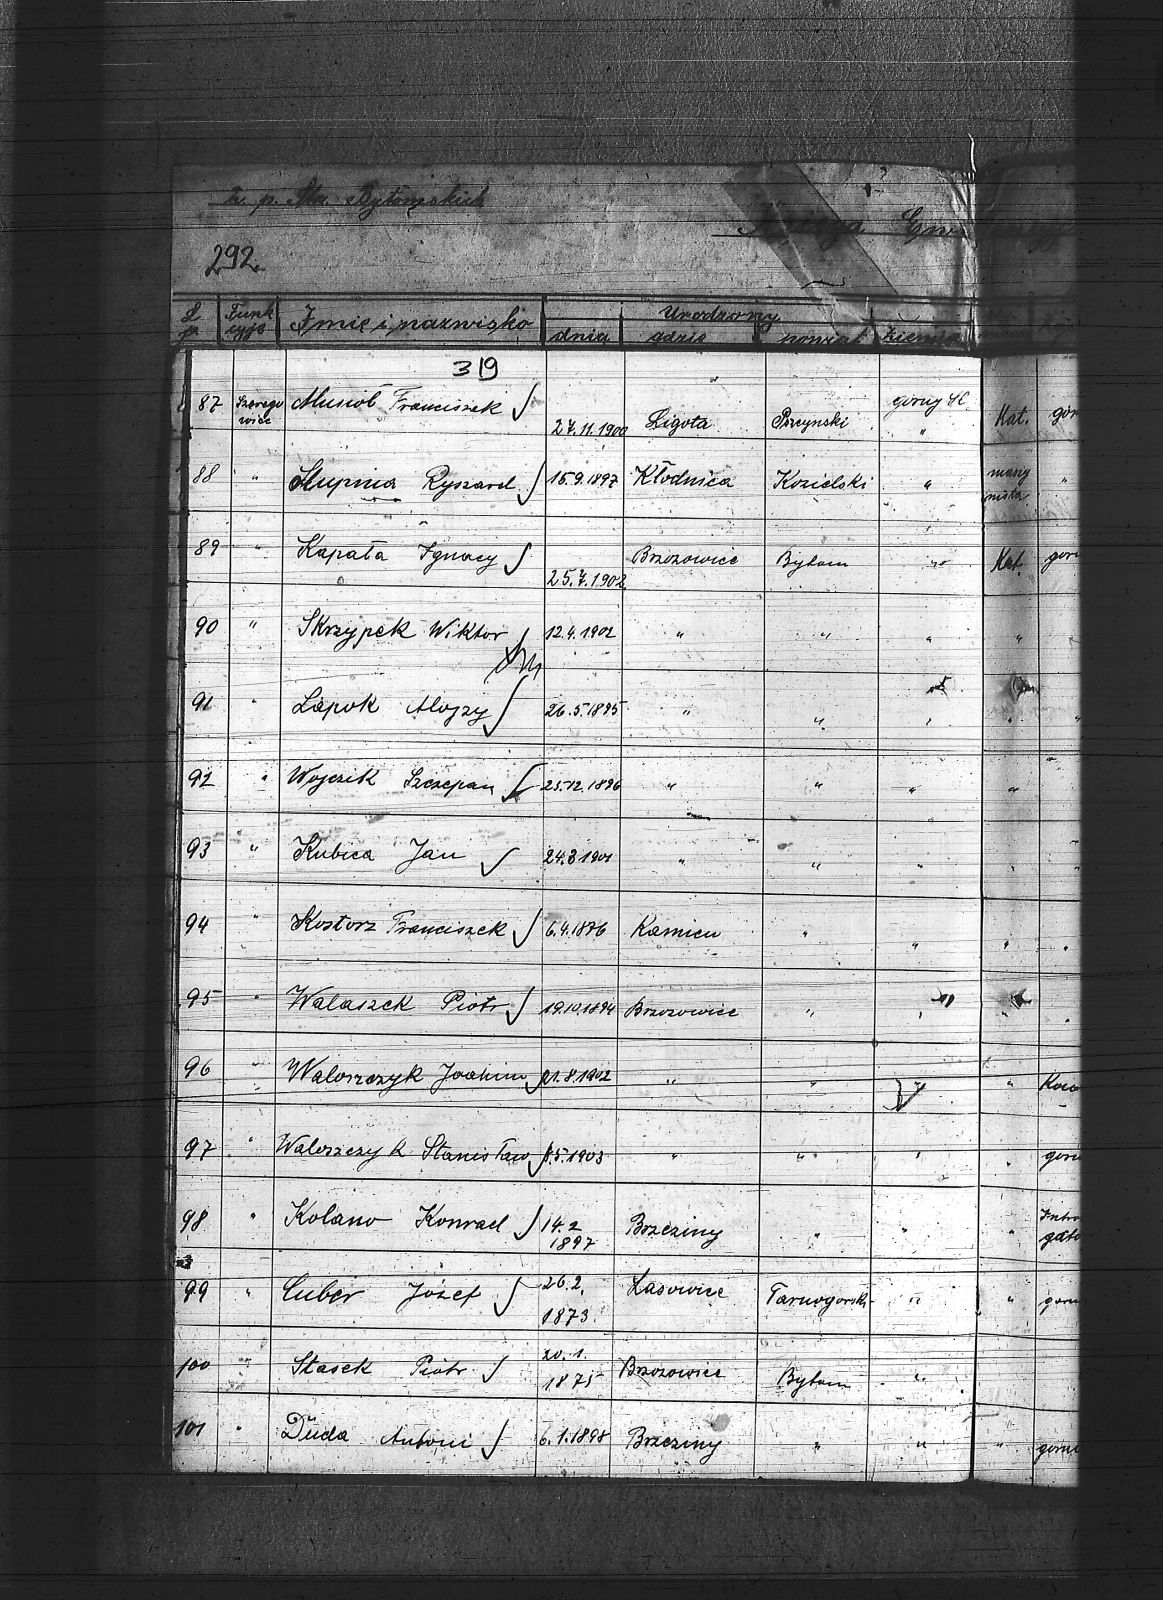 p. Bytomskich
Księga
292.
L p. Funk cyja Imię i nazwisko Urodzony
dnia gdzie powiat ziemia
319
87 Szerego wiec Musioł Franciszek 27.11.1900 Ligota Pszczynski gorny Śl. Kat. gór
88 " Słupina Ryszard 15.9.1897 Kłodnica Kozielski " maszy nista "
89 " Kapała Ignacy 25.7.1902 Brzozowice Bytom " Kat. gorn
90 " Skrzypek Wiktor 12.4.1902 " " " "
91 " Lapok Alojzy 26.5.1895 " " " " "
92 " Wojczik Szczepan 25.12.1896 " " " " "
93 " Kubica Jan 24.3.1901 " " " " "
94 " Kostorz Franciszek 6.4.1876 Kamien " " " "
95 " Walaszek Piotr 19.10.1894 Brzozowice " " " "
96 " Waloszczyk Joahim 21.8.1902 " " " " Kow
97 " Waloszczyk Stanisław 8.5.1903 " " " " gorn
98 " Kolano Konrad 14.2 1897 Brzeziny " " " Intro gato
99 " Cuber Józef 26.2. 1873. Lasowice Tarnogorski " " gorn
100 " Stasek Piotr 20.1. 1875 Brzozowice Bytom "
101 " Duda Antoni 6.1.1898 Brzeziny " " " gorn